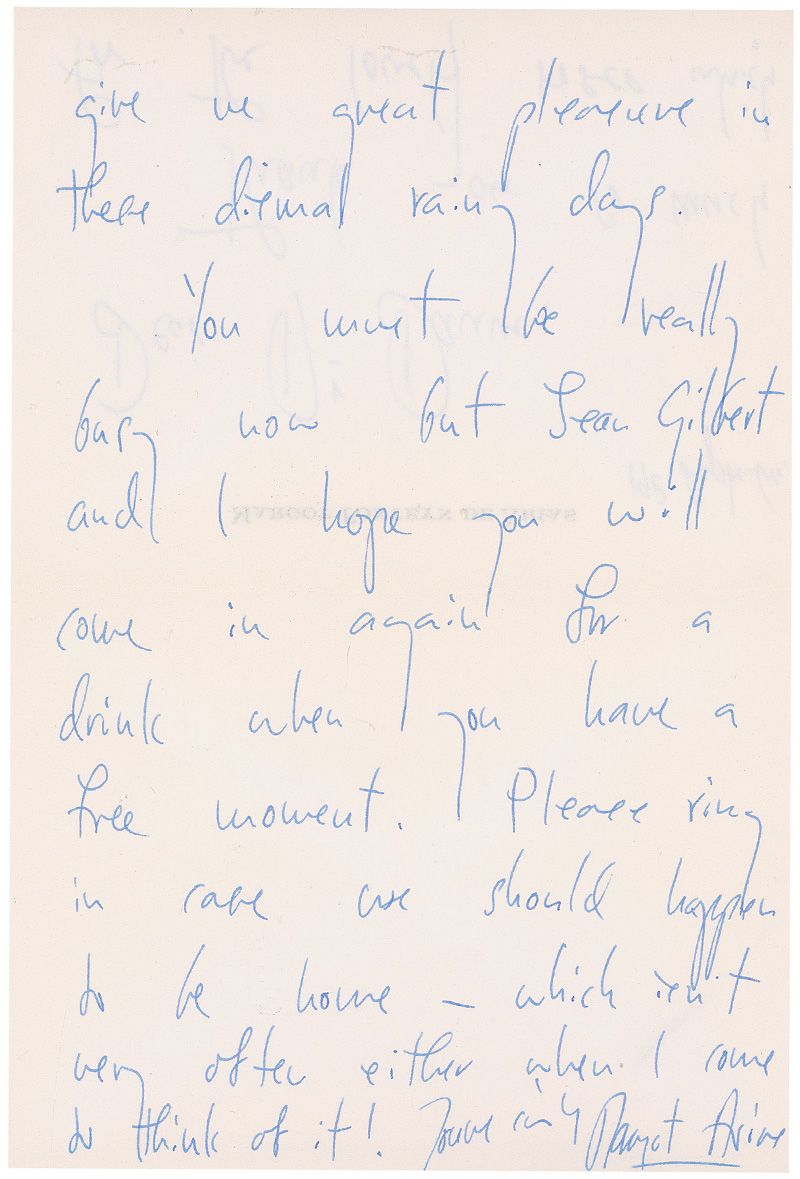 give us great pleasure in
these dismal rainy days.
You must be really
busy now but Jean Gilbert
and I hope you will
come in again for a
drink when you have a
free moment. Please ring
in case we should happen
to be home – which isn't
very often either when I come
to think of it! Yours Margot Arias